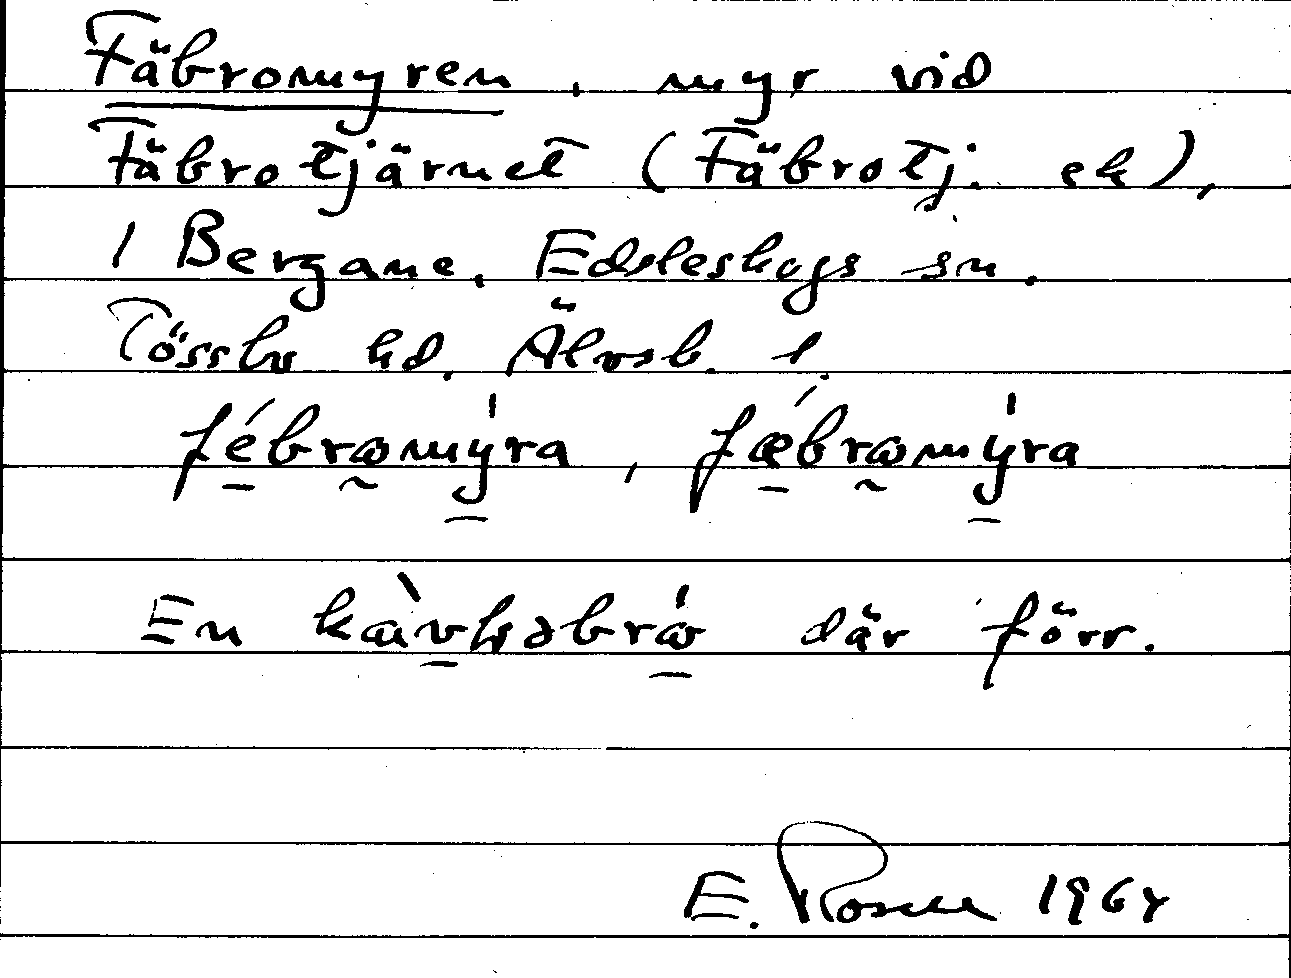 Fäbromyren, myr vid
Fäbrotjärnet (Fäbrotj. ek),
i Bergane, Edsleskogs sn.
Tössbo hd. Älvsb. l.
fébrωmýra, fæ´brωmýra
En kàvḷəbrώ där förr.
E. Rosell 1964